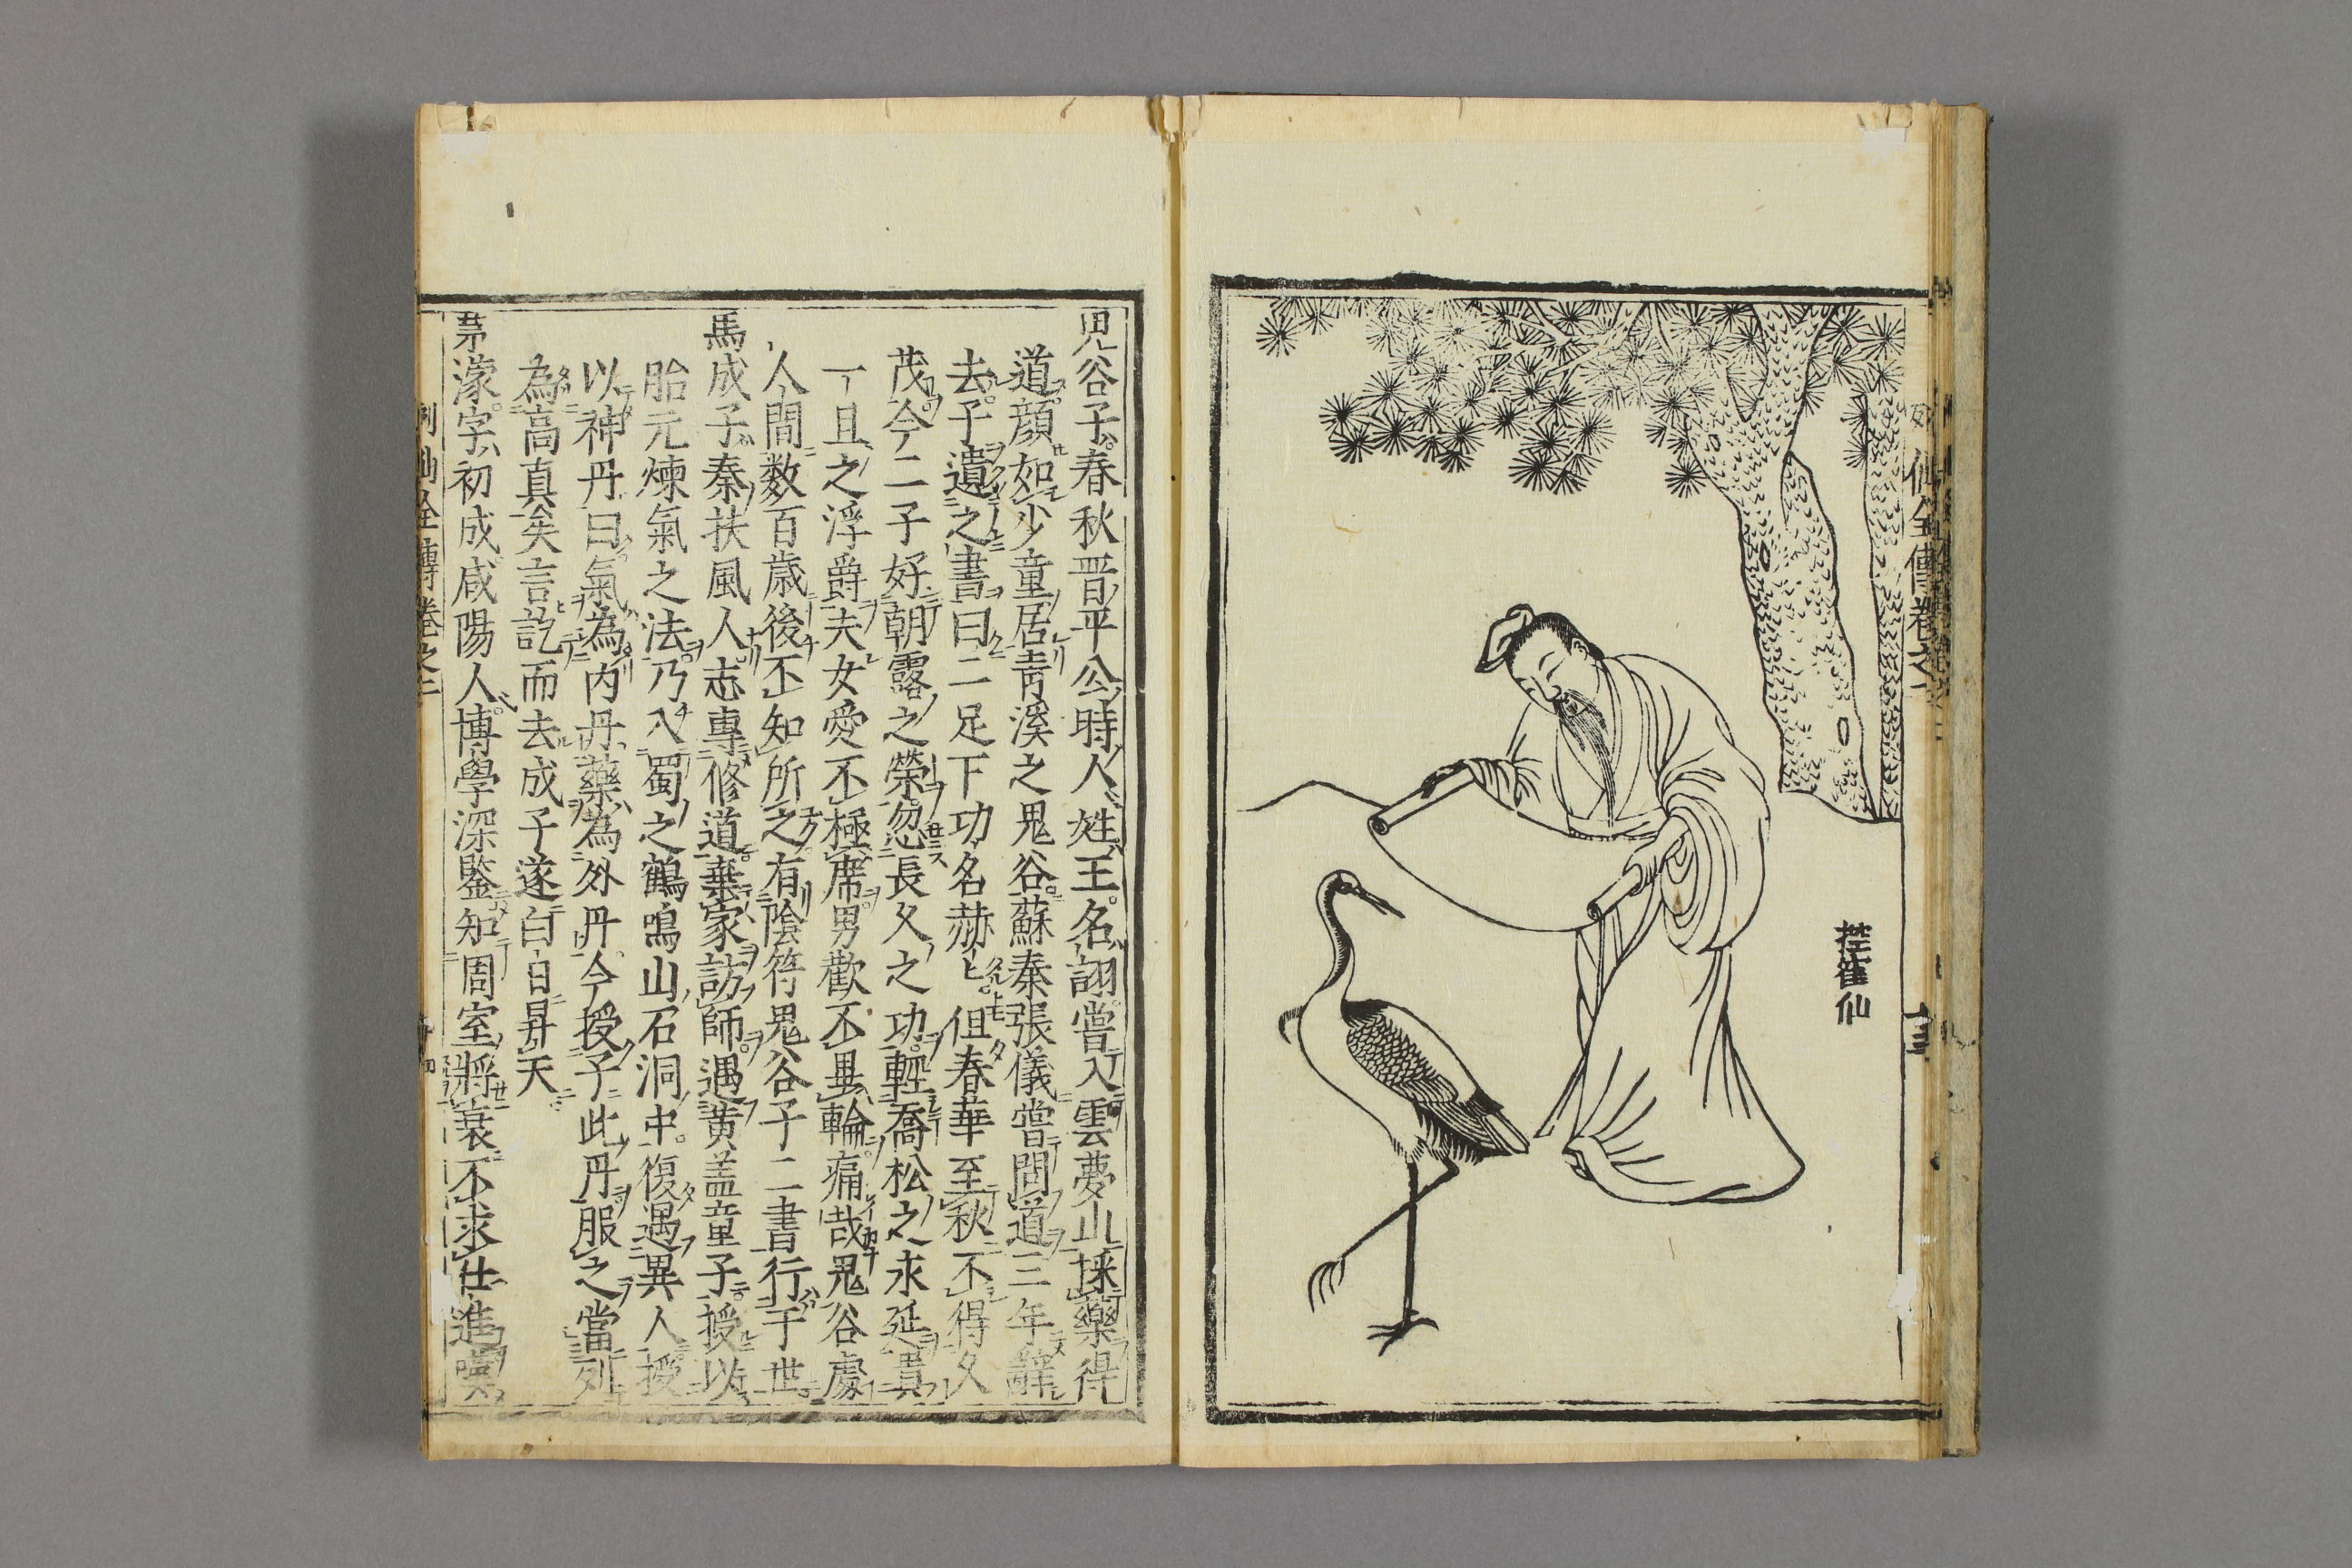 控崔仙
仙全傳卷之二
鬼谷子春秋晋平公時人姓王名詡嘗入雲夢山採藥得
道顔如少童居青溪之鬼谷蘇秦張儀嘗問道三年辭
去子遺之書曰二足下功名赫〻但春華至秋不得久
茂今二子好朝露之榮忽長久之功輕喬松之永延貴
一旦之浮爵夫女愛不極席男歡不畢輪痛哉鬼谷處
人間数百歳後不知所之有陰符鬼谷子二書行于世
馬成子秦扶風人志專修道棄家訪師遇黄盖童子授以
胎元煉氣之法乃入蜀之鶴鳴山石洞中復遇異人授
以神丹曰氣為内丹藥為外丹今授子此丹服之當列
為高真矣言訖而去成子遂白日昇天
茅濛字初成咸陽人博學深鑒知周室將衰不求仕進嘆
列仙全傳卷之二